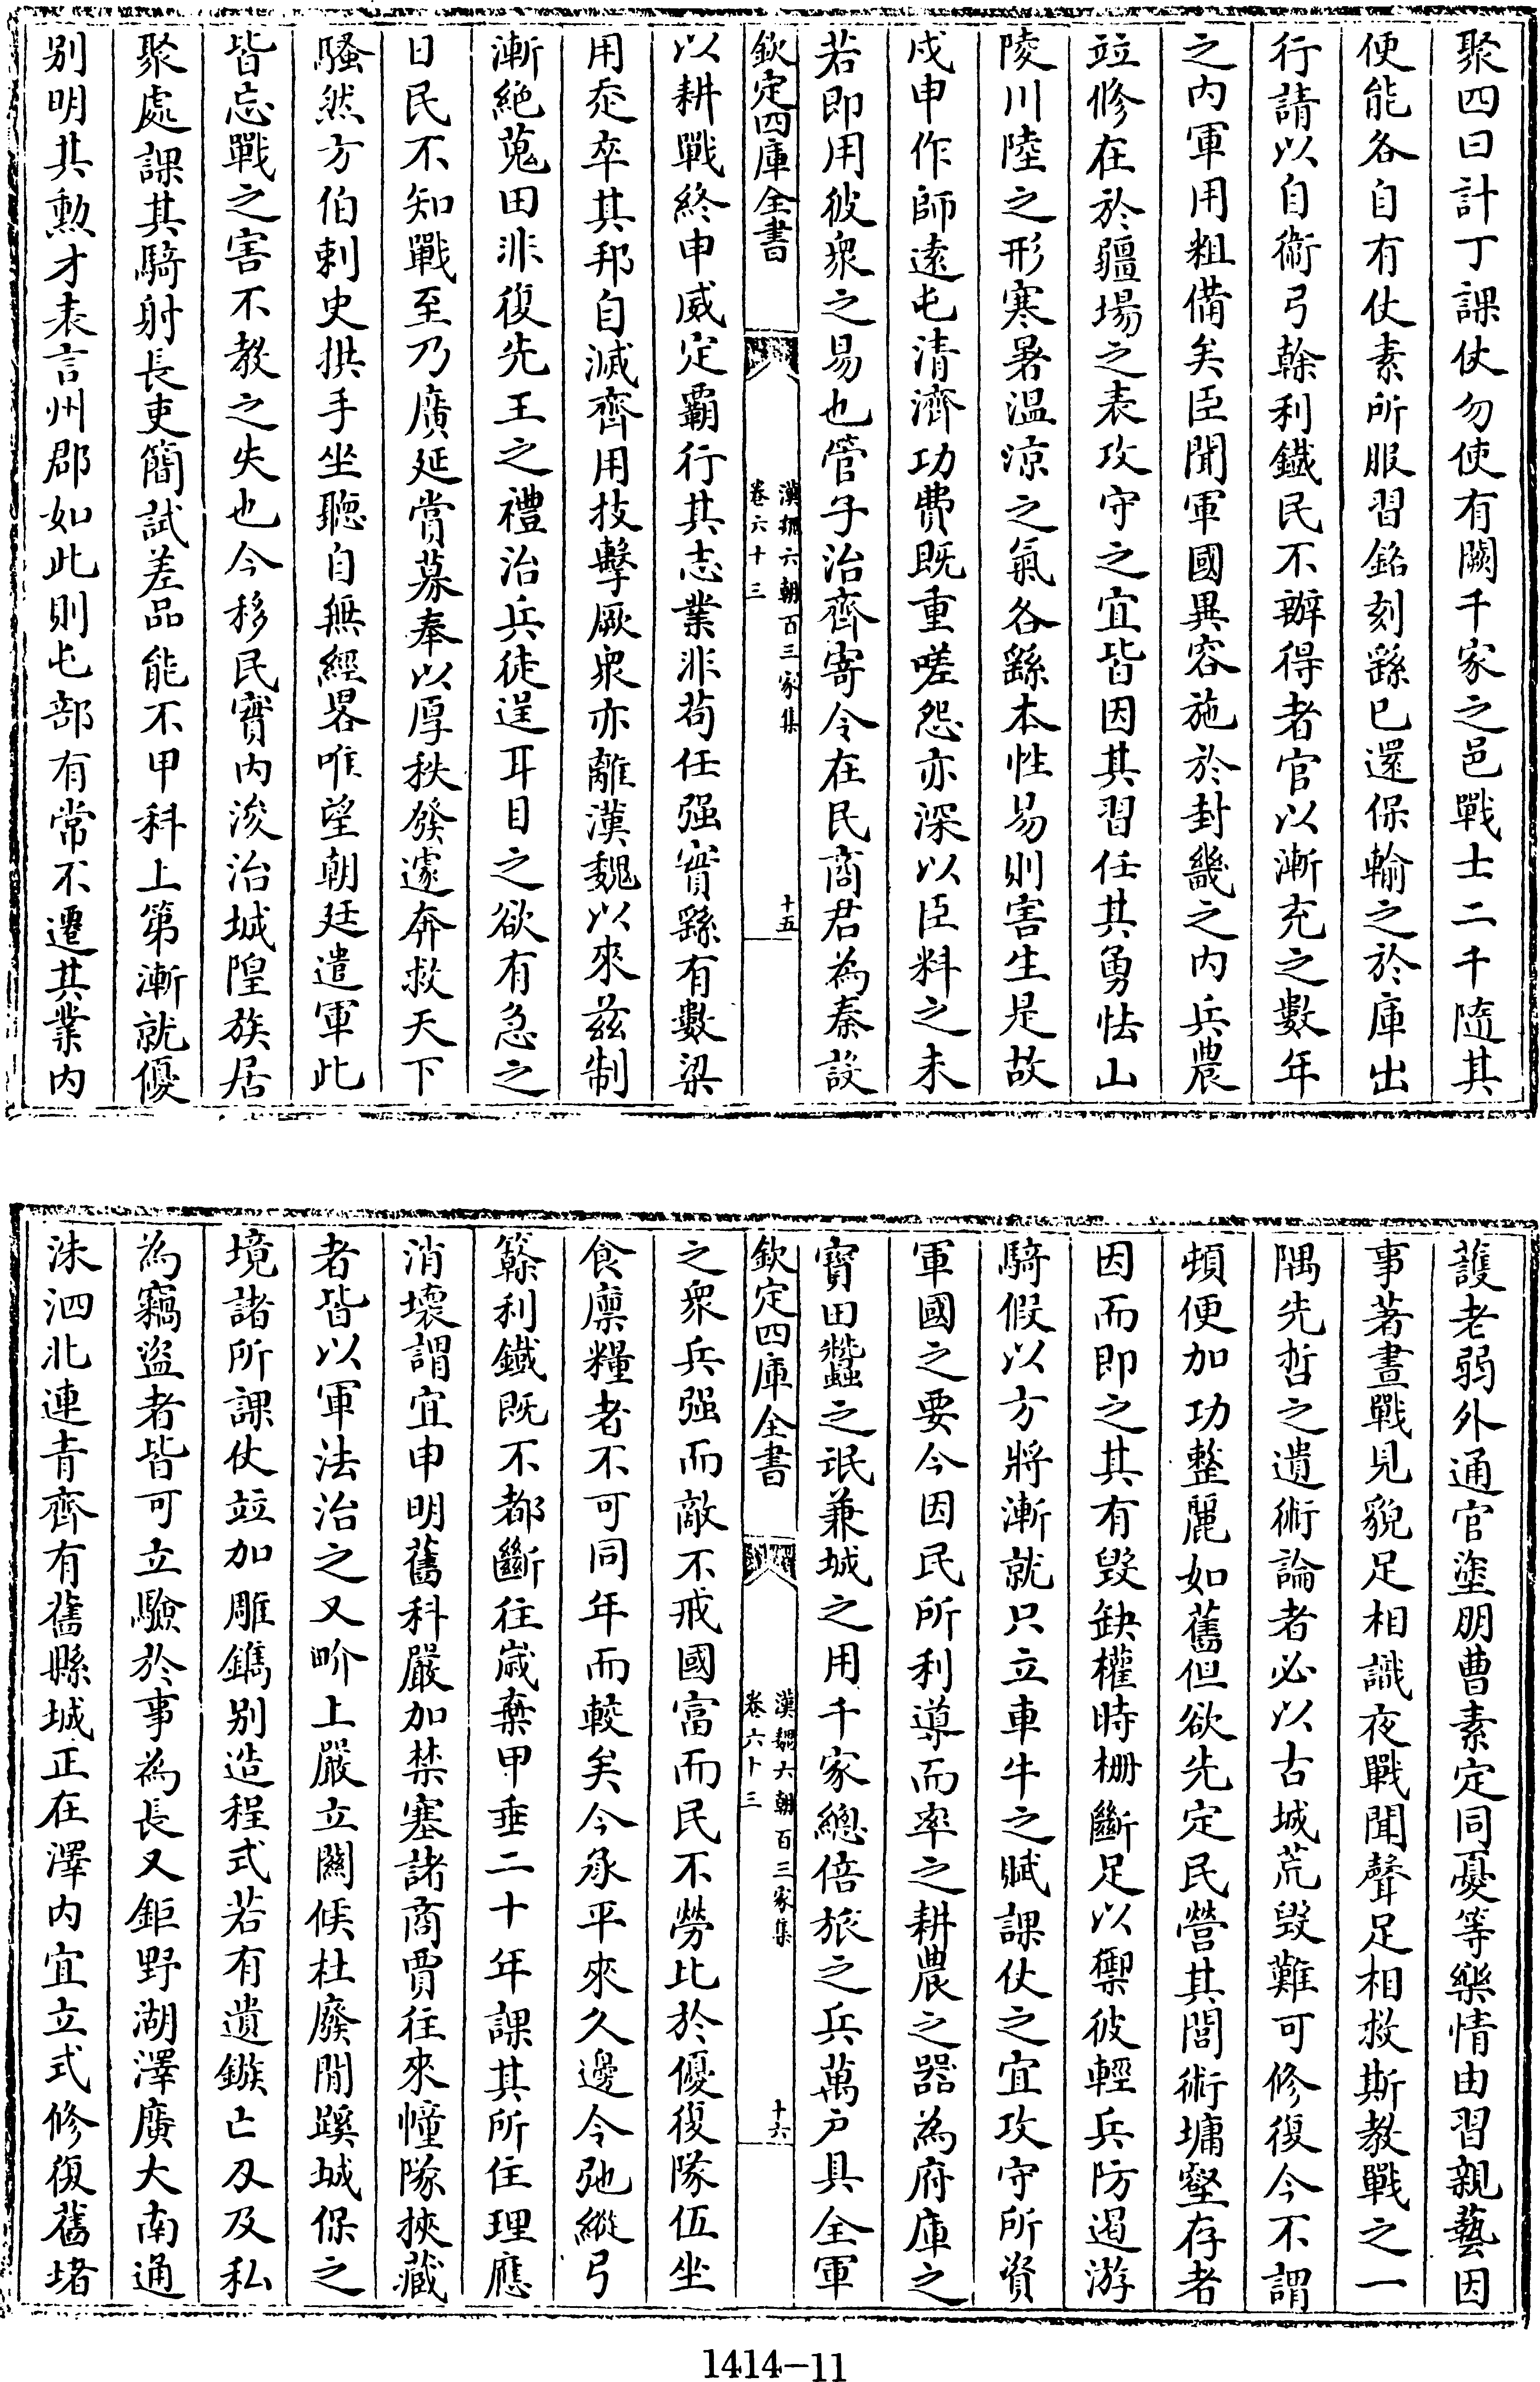 聚四曰計丁課仗勿使有闕千家之邑戰士二千隨其
便能各自有仗素所服習銘刻繇已還保輸之於庫出
行請以自衞弓簳利鐵民不辦得者官以漸充之數年
之内軍用粗備矣臣聞軍國異容施於封畿之内兵農
竝修在於疆場之表攻守之宜皆因其習任其勇怯山
陵川陸之形寒暑温涼之氣各繇本性易則害生是故
戍申作師遠屯清濟功費既重嗟怨亦深以臣料之未
若即用彼衆之易也管子治齊寄令在民商君為秦設
欽定四庫全書
漢魏六朝百三家集
卷六十三
十五
以耕戰終申威定霸行其志業非苟任强實繇有數梁
用走卒其邦自滅齊用技擊厥衆亦離漢魏以來兹制
漸絶蒐田非復先王之禮治兵徒逞耳目之欲有急之
日民不知戰至乃廣延賞募奉以厚秩發遽奔救天下
騷然方伯刺史拱手坐聽自無經畧唯望朝廷遣軍此
皆忘戰之害不教之失也今移民實内浚治城隍族居
聚處課其騎射長吏簡試差品能不甲科上第漸就優
别明其勲才表言州郡如此則屯部有常不遷其業内
護老弱外通官塗朋曹素定同憂等樂情由習親藝因
事著晝戰見貌足相識夜戰聞聲足相救斯教戰之一
隅先哲之遺術論者必以古城荒毁難可修復今不謂
頓便加功整麗如舊但欲先定民營其閭術墉壑存者
因而即之其有毁缺權時栅斷足以禦彼輕兵防遏游
騎假以方將漸就只立車牛之賦課仗之宜攻守所資
軍國之要今因民所利導而率之耕農之器為府庫之
寶田蠶之氓兼城之用千家總倍旅之兵萬户具全軍
欽定四庫全書
漢魏六朝百三家集
卷六十三
十六
之衆兵强而敵不戒國富而民不勞比於優復隊伍坐
食廩糧者不可同年而較矣今承平來久邊令弛縱弓
簳利鐵既不都斷往歲棄甲垂二十年課其所住理應
消壞謂宜申明舊科嚴加禁塞諸商賈往來幢隊挾藏
者皆以軍法治之又畍上嚴立關候杜廢閒蹊城保之
境諸所課仗竝加雕鐫别造程式若有遺鏃亡刄及私
為竊盜者皆可立驗於事為長又鉅野湖澤廣大南通
洙泗北連青齊有舊縣城正在澤内宜立式修復舊堵
1414-11